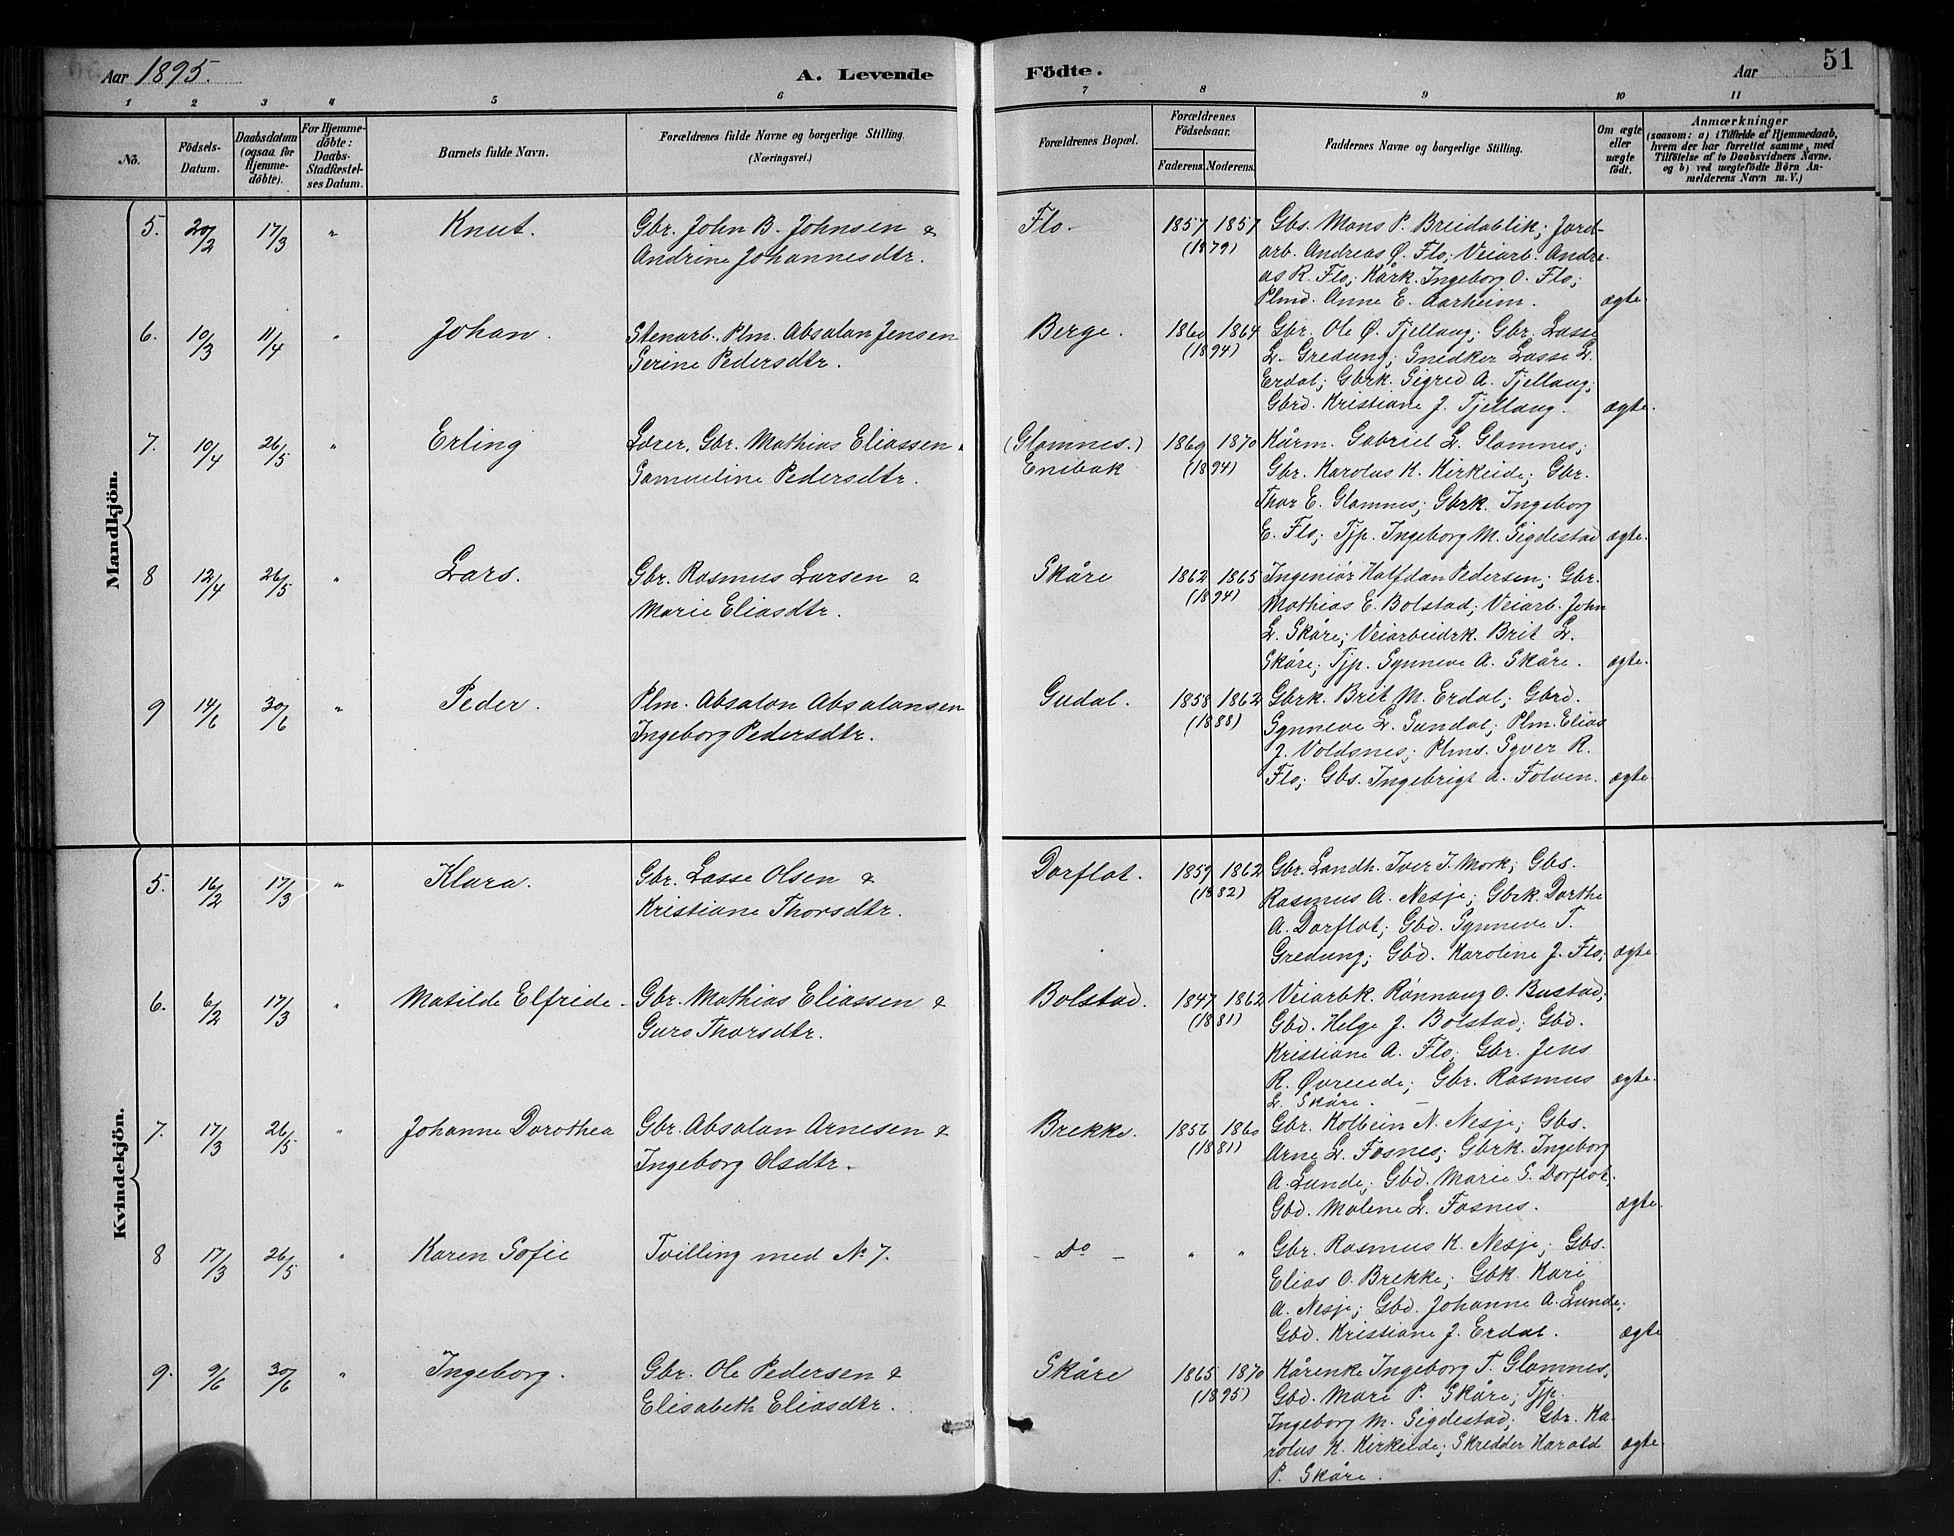 Aar 1895. A. Levende Födte. Aar 51
1 2 3 4 5 6 7 8 9 10 11
No.
Födsels-Datum.
Daabsdatum (ogsaa for Hjemme-döbte).
For Hjemme-döbte: Daabs-Stadfæstel-ses Datum.
Barnets fulde Navn.
Forældrenes fulde Navne og borgerlige Stilling.
(Næringsvei.)
Forældrenes Bopæl.
Forældrenes Födselsaar.
Faderens. Moderens.
Faddernes Navne og borgerlige Stilling.
Om ægte eller uægte födt.
Anmærkninger
(saasom: a) i Tilfælde af Hjemmedaab,
hvem der har forrettet samme, med
Tilföielse af to Daabsvidners Navne,
og b) ved uægtefödte Börn An-
melderens Navn m. V.)
Mandkjön.
5. 20/2 17/3 " Knut. Gbr. John B. Johnsen & Flo. 1857 1857 Gbs. Mons P. Breidablik; Jord-
Andrine Johannesdtr. (1879) arb. Andreas Ø. Flo; Veiarb. Andre-
as R. Flo; Kårk. Ingeborg O. Flo;
Plmd. Anne E. Aarheim. ægte
6. 10/3 11/4 " Johan. Stenarb., Plm. Absalon Jensen Berge. 1860 1864 Gbr. Ole Ø. Tjellaug; Gbr. Lasse
Serine Pedersdtr. (1894) L. Gredung; Snedker Lasse L.
Erdal; Gbrk. Sigred A. Tjellaug;
Gbrd. Kristiane J. Tjellaug. ægte.
7. 10/4 26/5 " Erling Lærer, Gbr. Mathias Eliassen & (Glomnes.) 1869 1870 Kårm. Gabriel L. Glomnes;
Samueline Pedersdtr. Enibak (1894) Gbr. Karolus K. Kirkeide; Gbr.
Thor E. Glomnes; Gbrk. Ingeborg
E. Flo; Tjp. Ingeborg M. Sigdestad ægte.
8 12/4 26/5 " Lars. Gbr. Rasmus Larsen & Skåre 1862 1865 Ingeniør Halfdan Pedersen; Gbr.
Marie Eliasdtr. (1894) Mathias E. Bolstad; Veiarb. John
L. Skåre; Veiarbeidrk. Brit L.
Skåre; Tjp. Synneve A. Skåre. ægte.
9 14/6 30/6 " Peder. Plm. Absalon Absalonsen Gudal. 1858 1862 Gbrk. Brit M. Erdal; Gbrd.
Ingeborg Pedersdtr. (1888) Synneve L. Sundal; Plm. Elias
J. Voldsnes; Plms. Syver R.
Flo; Gbs. Ingebrigt A. Folven. ægte
Kvindekjön.
5. 16/2 17/3 " Klara. Gbr. Lasse Olsen & Dorflot. 1859 1862 Gbr. Landh. Iver I. Mork; Gbs.
Kristiane Thorsdtr. (1882) Rasmus A. Nesje; Gbrk. Dorthe
A. Dorflot; Gbd. Synneve T.
Gredung; Gbd. Karoline J. Flo; ægte.
6. 6/2 17/3 " Matilde Elfride. Gbr. Mathias Eliassen & Bolstad. 1847 1862 Veiarbk. Rønnaug O. Bustad;
Guro Thorsdtr. (1881) Gbd. Helge J. Bolstad; Gbd.
Kristiane A. Flo; Gbr. Jens
R. Øvreeide; Gbr. Rasmus ægte.
L. Skåre.
7. 17/3 26/5 " Johanne Dorothea Gbr. Absalon Arnesen & Brekke. 1856 1860 Gbr. Kolbein N. Nesje; Gbs.
Ingeborg Olsdtr. (1881) Arne L. Fosnes; Gbrk. Ingeborg
A. Lunde; Gbd. Marie S. Dorflot,
Gbd. Malene L. Fosnes. ægte.
8 17/3 26/5 " Karen Sofie Tvilling med No 7. - Do - " " Gbr. Rasmus K. Nesje; Gbs.
Elias O. Brekke; Gbk. Kari
A. Nesje; Gbd. Johanne A. Lunde;
Gbd. Kristiane J. Erdal. ægte
9. 9/6 30/6 " Ingeborg. Gbr. Ole Pedersen & Skåre 1865 1870 Kårenke Ingeborg T. Glomnes;
Elisabeth Eliasdtr. (1895) Gbd. Mari P. Skåre; Tjp.
Ingeborg M. Sigdestad; Gbr. Ka-
rolus K. Kirkeide; Skredder Harald ægte
P. Skåre.